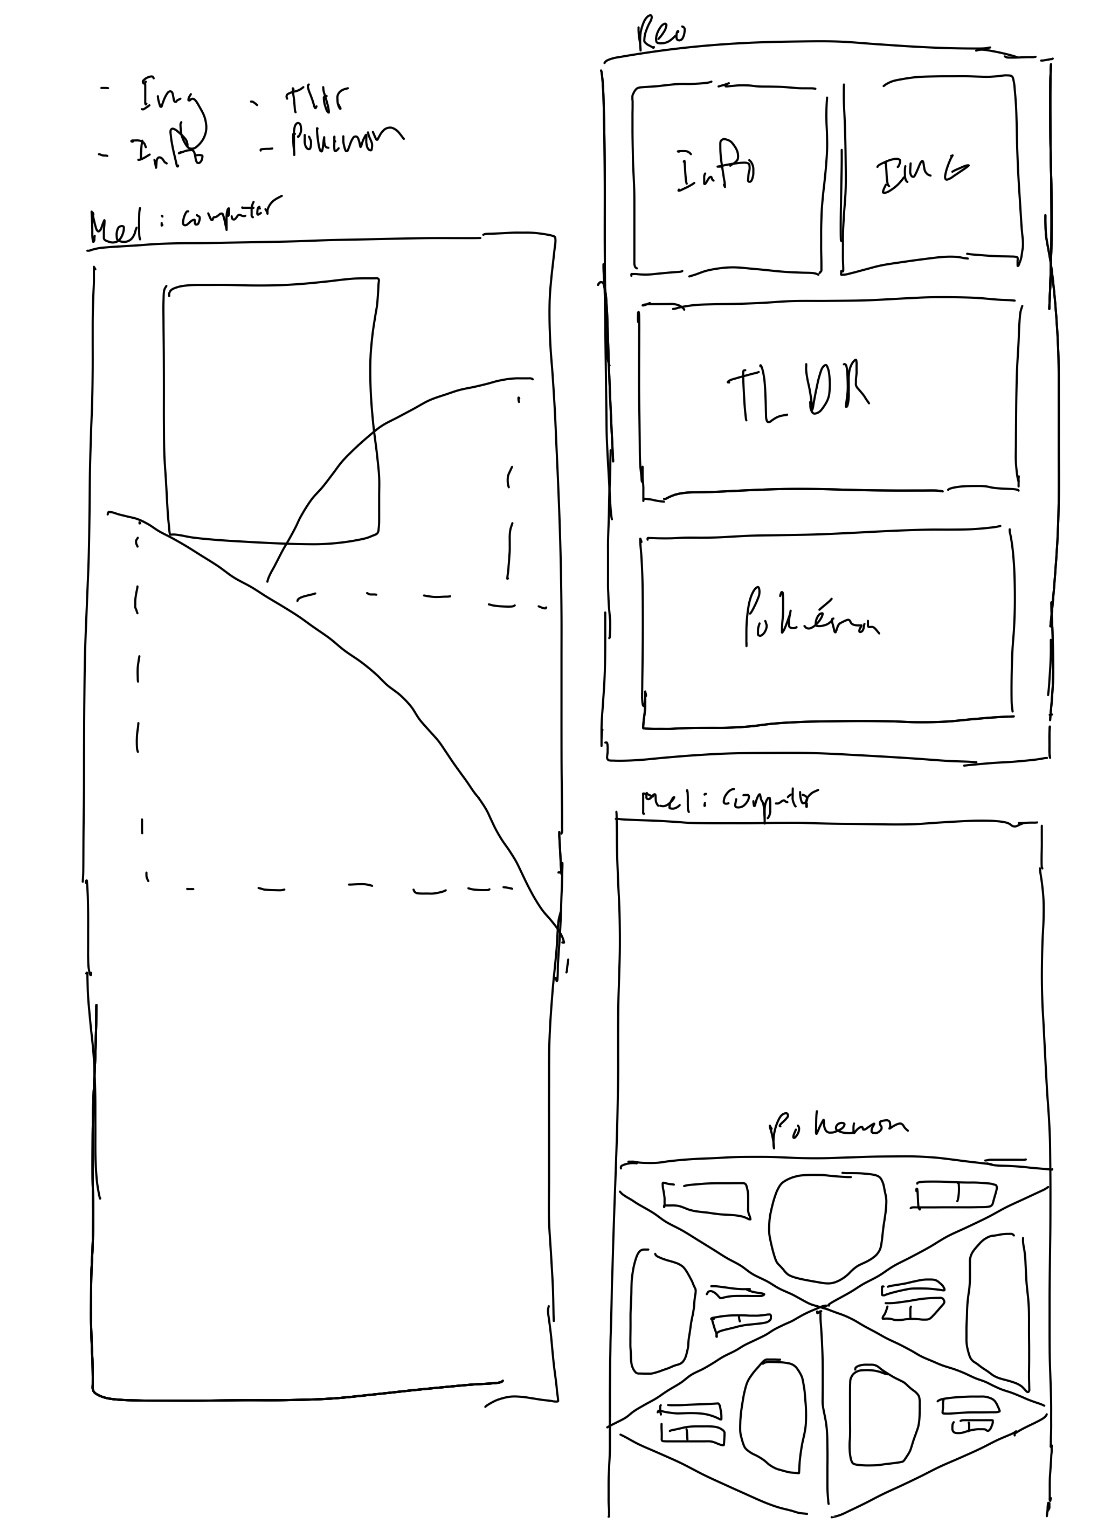 - Img - TLDR
- Info - Pokemon
Mel : computer
Reo
Info
IMG
TLDR
Pokémon
Mel : computer
Pokemon